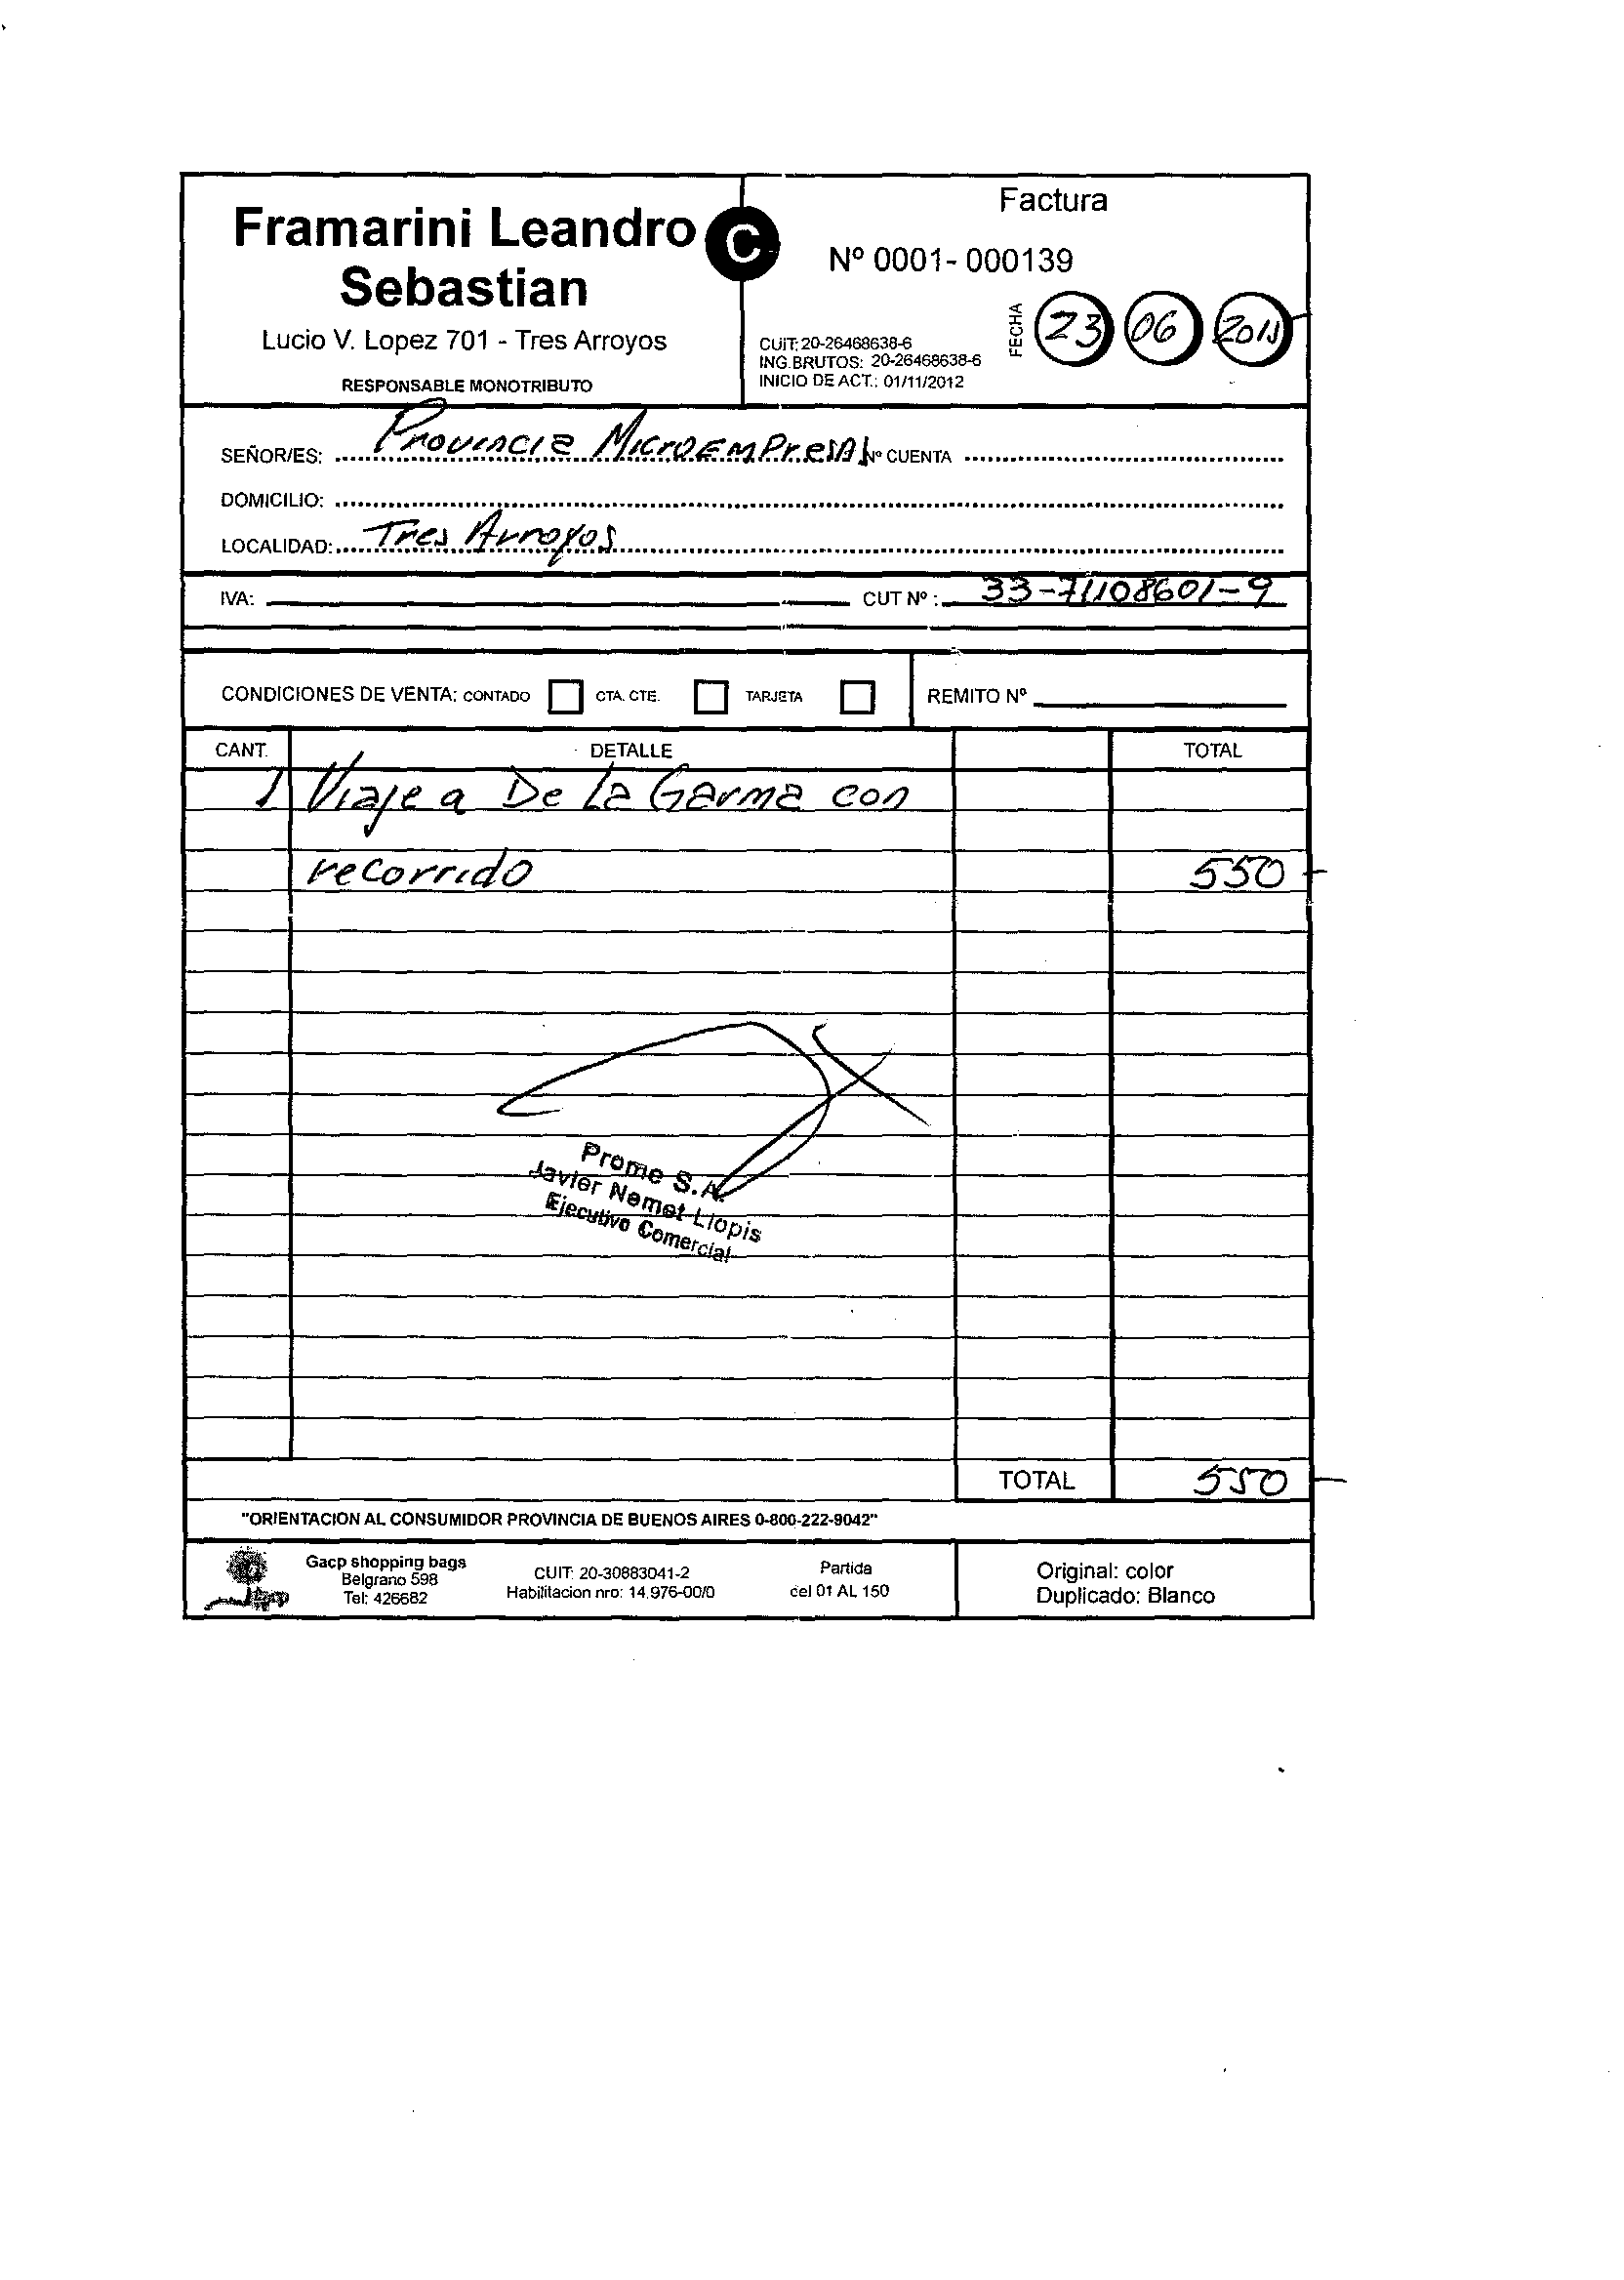 Factura
Framarini Leandro
Sebastian
C
Nº 0001- 000139
Lucio V. Lopez 701 - Tres Arroyos
RESPONSABLE MONOTRIBUTO
CUIT: 20-26468638-6
ING.BRUTOS: 20-26468638-6
INICIO DE ACT.: 01/11/2012
FECHA 23 06
SEÑOR/ES: Provincia MicroEmpresA Nº CUENTA
DOMICILIO:
LOCALIDAD: Tres Arroyos
IVA: CUT Nº : 33-71108601-9
CONDICIONES DE VENTA: CONTADO CTA. CTE. TARJETA REMITO Nº
CANT. DETALLE TOTAL
1 Viaje a De La Garma con
recorrido 550
Prome S.A.
Javier Nemet Liopis
Ejecutivo Comercial
TOTAL 550
"ORIENTACION AL CONSUMIDOR PROVINCIA DE BUENOS AIRES 0-800-222-9042"
Gacp shopping bags
Belgrano 598
Tel: 426682
CUIT: 20-30883041-2
Habilitacion nro: 14.976-00/0
Partida
cel 01 AL 150
Original: color
Duplicado: Blanco